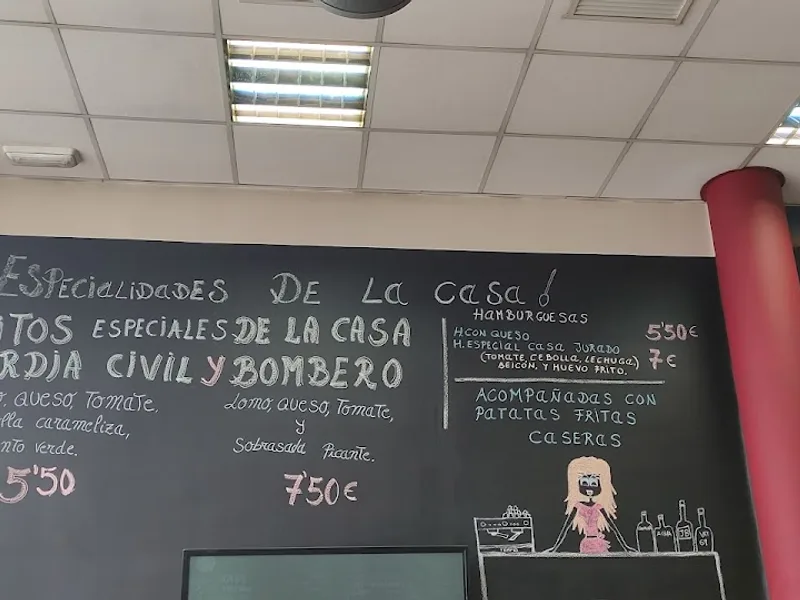 ESPECIALIDADES DE LA CASA!
ITOS ESPECIALES DE LA CASA
RDIA CIVIL Y BOMBERO
O, QUESO, TOMATE,
lla carameliza,
nto verde.
5'50
Lomo, queso, Tomate,
y
Sobrasada Picante.
7'50€
HAMBURGUESAS
H.CON QUESO 5'50€
H. ESPECIAL CASA JURADO 7€
(TOMATE, CEBOLLA, LECHUGA,)
BEICÓN, Y HUEVO FRITO.
ACOMPAÑADAS CON
PATATAS FRITAS
CASERAS
JB
VAT
69